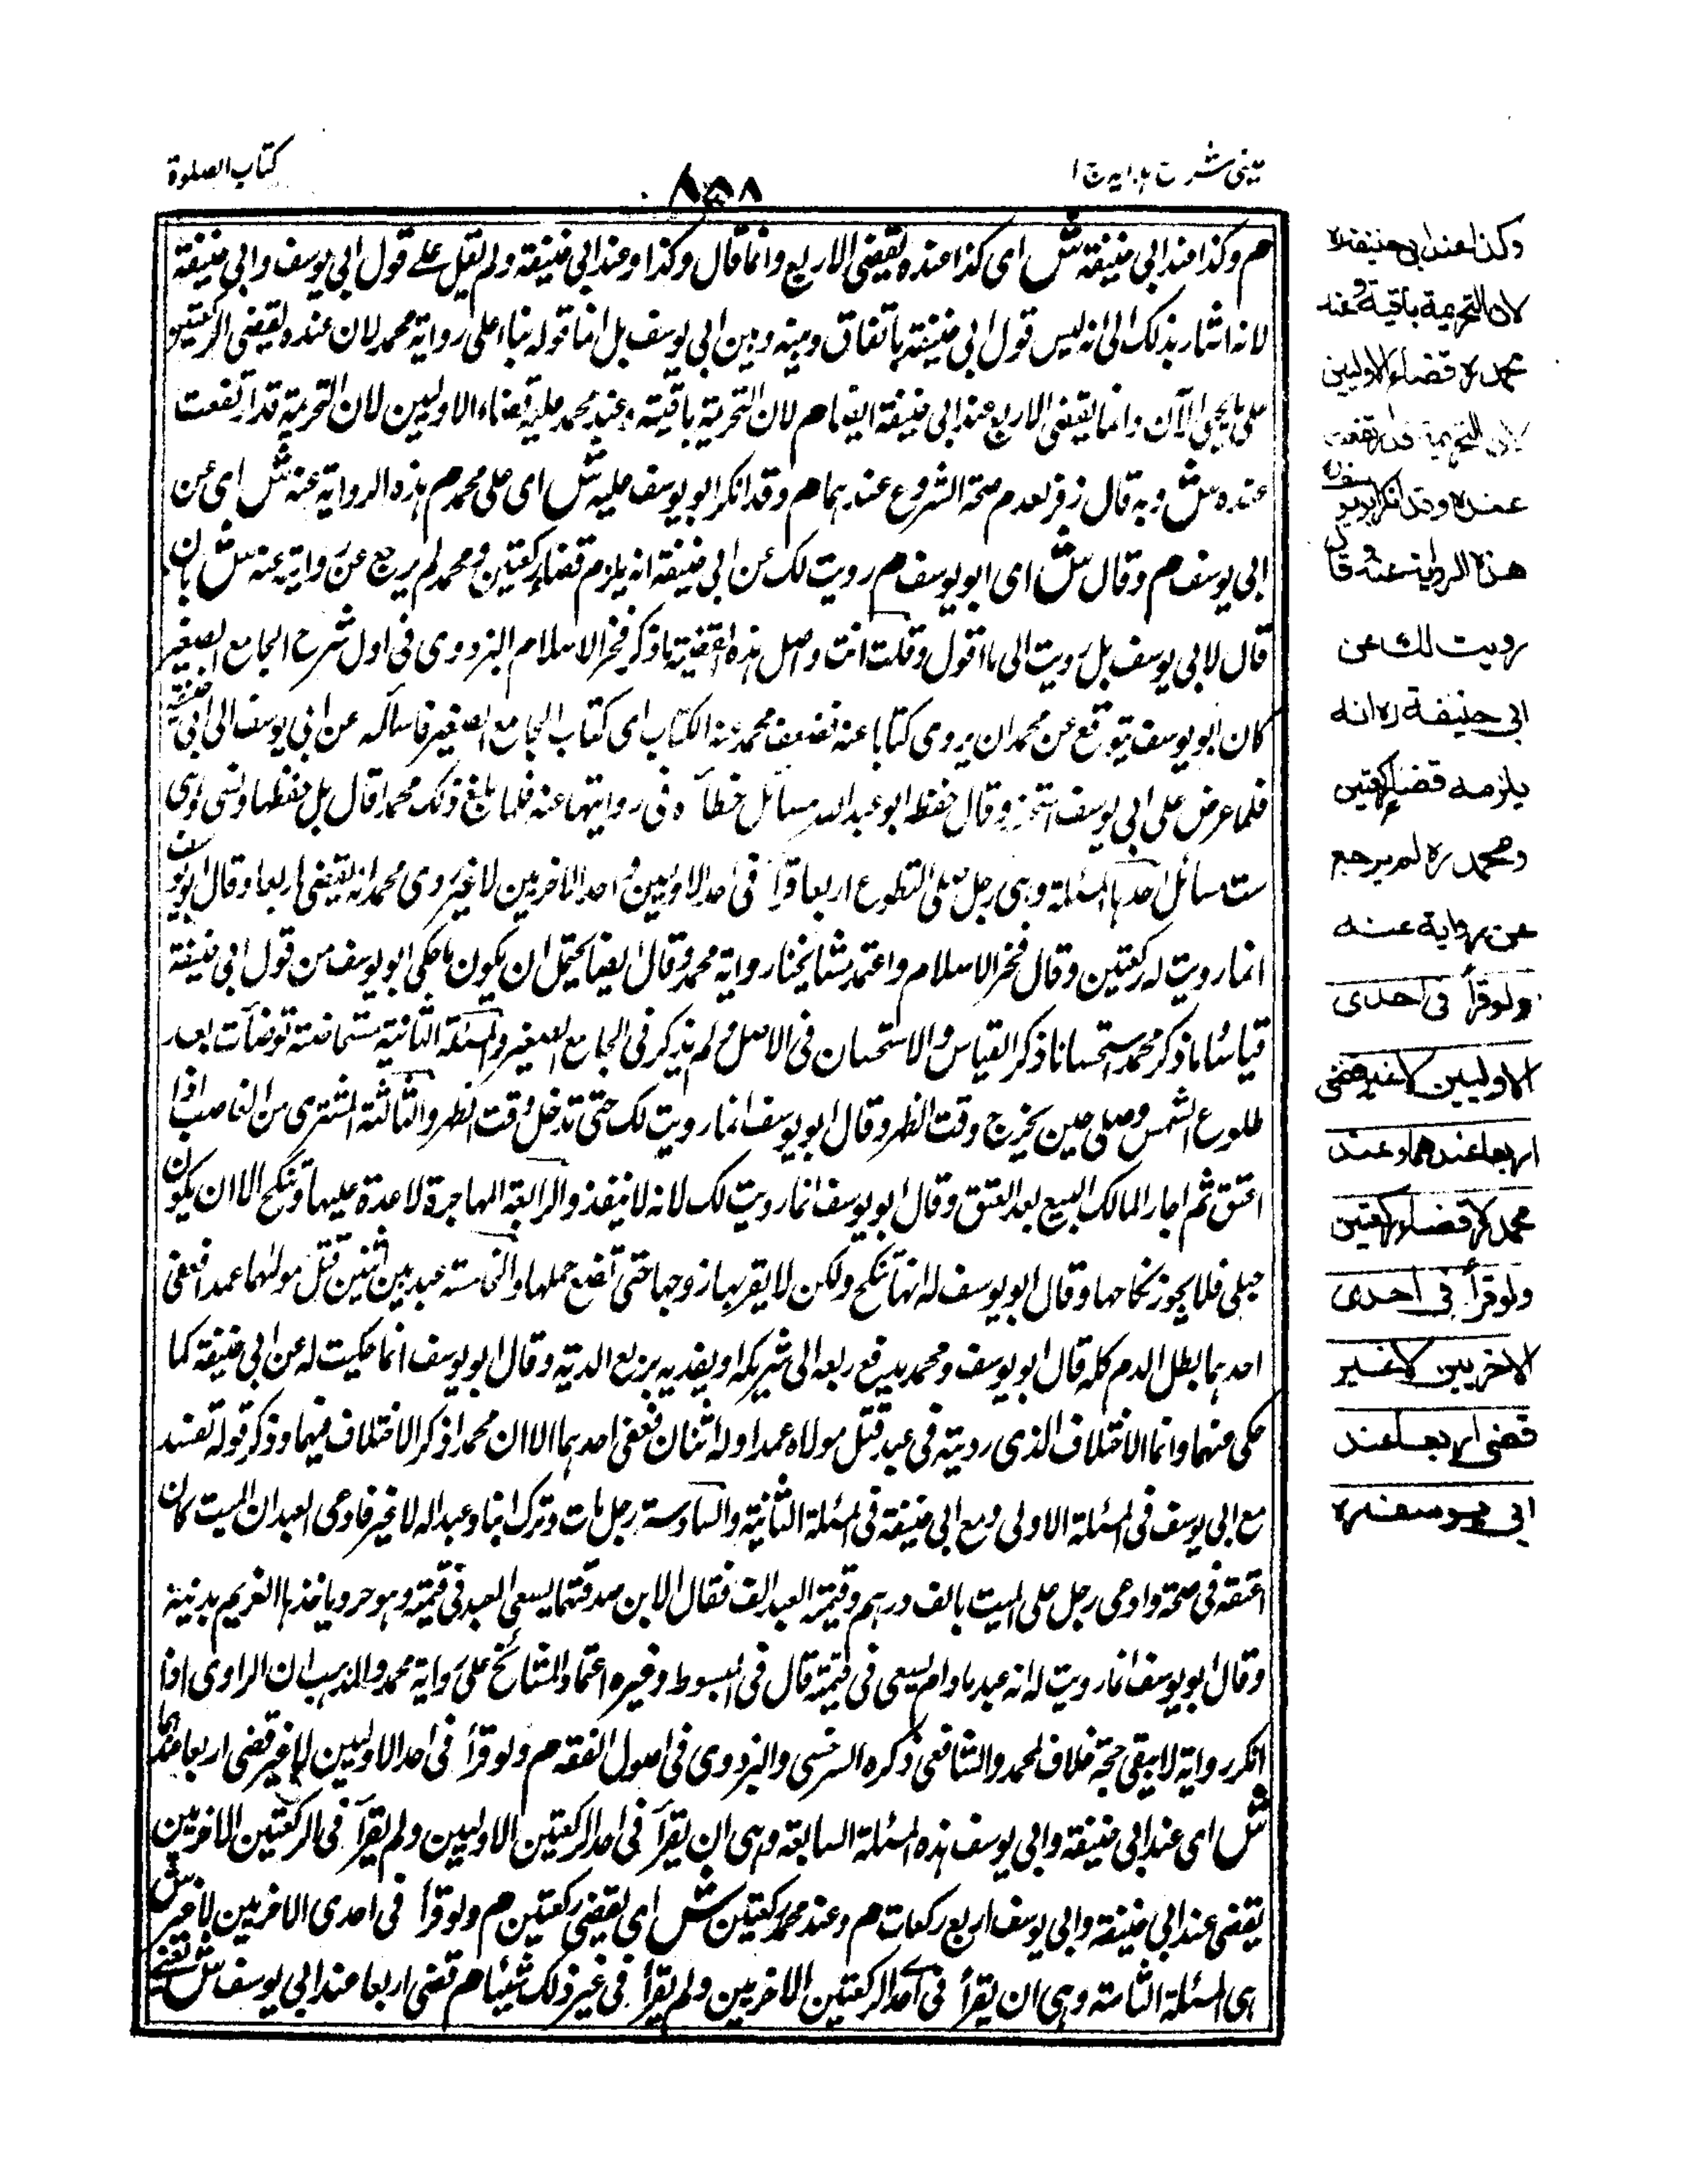 عینی شرح ہدایہ ج ا
۸۵۸
كتاب الصلوة
م وكذا عند ابی حنیفة ش ای كذا عنده یقضی الاربع وانما قال وكذا وعند ابی حنیفة ولم یقل علے قول ابی یوسف وابی حنیفة
لانه اشار بذلک الی انه لیس قول ابی حنیفة باتفاق وبینه وبین ابی یوسف بل انما قوله بناء علی روایة محمد لان عنده یقضی الركعتین
علی ما یجئ الآن وانما یقضی الاربع عند ابی حنیفة ایضا م لان التحریمة باقیة وعند محمد علیه قضاء الاولیین لان التحریمة قد ارتفعت
عنده ش وبه قال زفر لعدم صحة الشروع عندهما م وقد انكر ابو یوسف علیه ش ای علی محمد م هذه الروایة عنه ش ای عن
ابی یوسف م وقال ش ای ابو یوسف م رویت لک عن ابی حنیفة انه یلزم قضاء ركعتین ومحمد لم یرجع عن روایة عنه ش بان
قال لابی یوسف بل رویت الی ما اقول وقلت انت واصل هذه القضیة ما ذكر فخر الاسلام البزدوی فی اول شرح الجامع الصغیر
كان ابو یوسف یتوقع عن محمد ان یروی كتابا عنه فصنف محمد عنه الكتاب ای كتاب الجامع الصغیر فاسنده عن ابی یوسف الی ابی حنیفة
فلما عرض علی ابی یوسف استحسنه وقال حفظ ابو عبد الله مسائل خطأه فی روایتها عنه فلما بلغ ذلک محمدا قال بل حفظها ونسی وهی
ست مسائل احدها المسئلة وهی رجل صلی التطوع اربعا وقرأ فی احد الاولیین و احد الاخریین لا غیر روی محمد انه یقضی اربعا وقال ابو یوسف
انما رویت له ركعتین وقال فخر الاسلام واعتمد مشایخنا روایة محمد وقال ایضا یحتمل ان یكون ما حكی ابو یوسف من قول ابی حنیفة
قیاسا وما ذكر محمد استحسانا ذكر القیاس والاستحسان فی الاصل ولم یذكر فی الجامع الصغیر والمسئلة الثانیة مستحاضة توضأت بعد
طلوع الشمس وصلی حین یخرج وقت الظهر وقال ابو یوسف انما رویت لک حتی تدخل وقت الظهر والثالثة المشتری من الغاصب اذا
اعتق ثم اجاز المالک البیع بعد العتق وقال ابو یوسف انما رویت لک لانه لا ینفذ والرابعة المهاجرة لا عدة علیها وتنكح الا ان یكون
حبلی فلا یجوز نكاحها وقال ابو یوسف له انها تنكح ولكن لا یقربها زوجها حتی تضع حملها والخامسة عبد بین اثنین قتل مولٰهما عمدا فعفی
احدهما بطل الدم كله قال ابو یوسف ومحمد یدفع ربعه الی شریكه او یفدیه بربع الدیة وقال ابو یوسف انما حكیت له عن ابی حنیفة كما
حكی منهما وانما الاختلاف الذی رویته فی عبد قتل مولاه عمدا وله اثنان فعفی احدهما الا ان محمدا ذكر الاختلاف فیهما وذكر قوله تفسه
مع ابی یوسف فی المسئلة الاولی ومع ابی حنیفة فی المسئلة الثانیة والسادسة رجل مات وترك ابنا وعبدا له لا غیر فادعی العبد ان المیت كان
اعتقه فی صحة وادعی رجل علی المیت بالف درهم وقیمة العبد الف فقال الابن صدقتما یسعی العبد فی قیمته وهو حر ویاخذها الغریم بدینه
وقال ابو یوسف انما رویت له انه عبد ما دام یسعی فی قیمته قال فی المبسوط وغیره اعتماد المشائخ علی روایة محمد والمذهب ان الراوی اذا
انكر روایة لا یبقی حجة خلاف لمحمد والشافعی ذكره السرخسی والبزدوی فی اصول الفقه م ولو قرأ فی احد الاولیین لا غیر قضی اربعا عندهما
ش ای عند ابی حنیفة وابی یوسف هذه المسئلة السابعة وهی ان یقرأ فی احد الركعتین الاولیین ولم یقرأ فی الركعتین الاخریین
یقضی عند ابی حنیفة وابی یوسف اربع ركعات م وعند محمد ركعتین ش ای یقضی ركعتین م ولو قرأ فی احدی الاخریین لا غیر ش
ای المسئلة الثامنة وهی ان یقرأ فی احد الركعتین الاخریین ولم یقرأ فی غیر ذلک شیئا م قضی اربعا عند ابی یوسف ش یقضی
وكذا عند ابی حنیفة ره
لان التحریمة باقیة وعند
محمد ره قضاء الاولیین
لان التحریمة قد ارتفعت
عنده وقد انكر ابو یوسف ره
هذه الروایة عنه وقال
رویت لك عن
ابی حنیفة ره انه
یلزمه قضاء ركعتین
ومحمد ره لم یرجع
عن روایة عنه
ولو قرأ فی احدی
الاولیین لا غیر قضی
اربعا عندهما وعند
محمد ره قضاء ركعتین
ولو قرأ فی احدی
الاخریین لا غیر
قضی اربعا عند
ابی یوسف ره